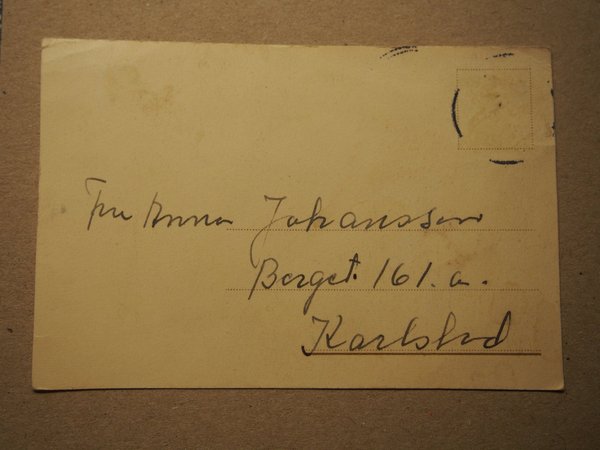 Fru Anna Johansson
Berget. 161. a.
Karlstad